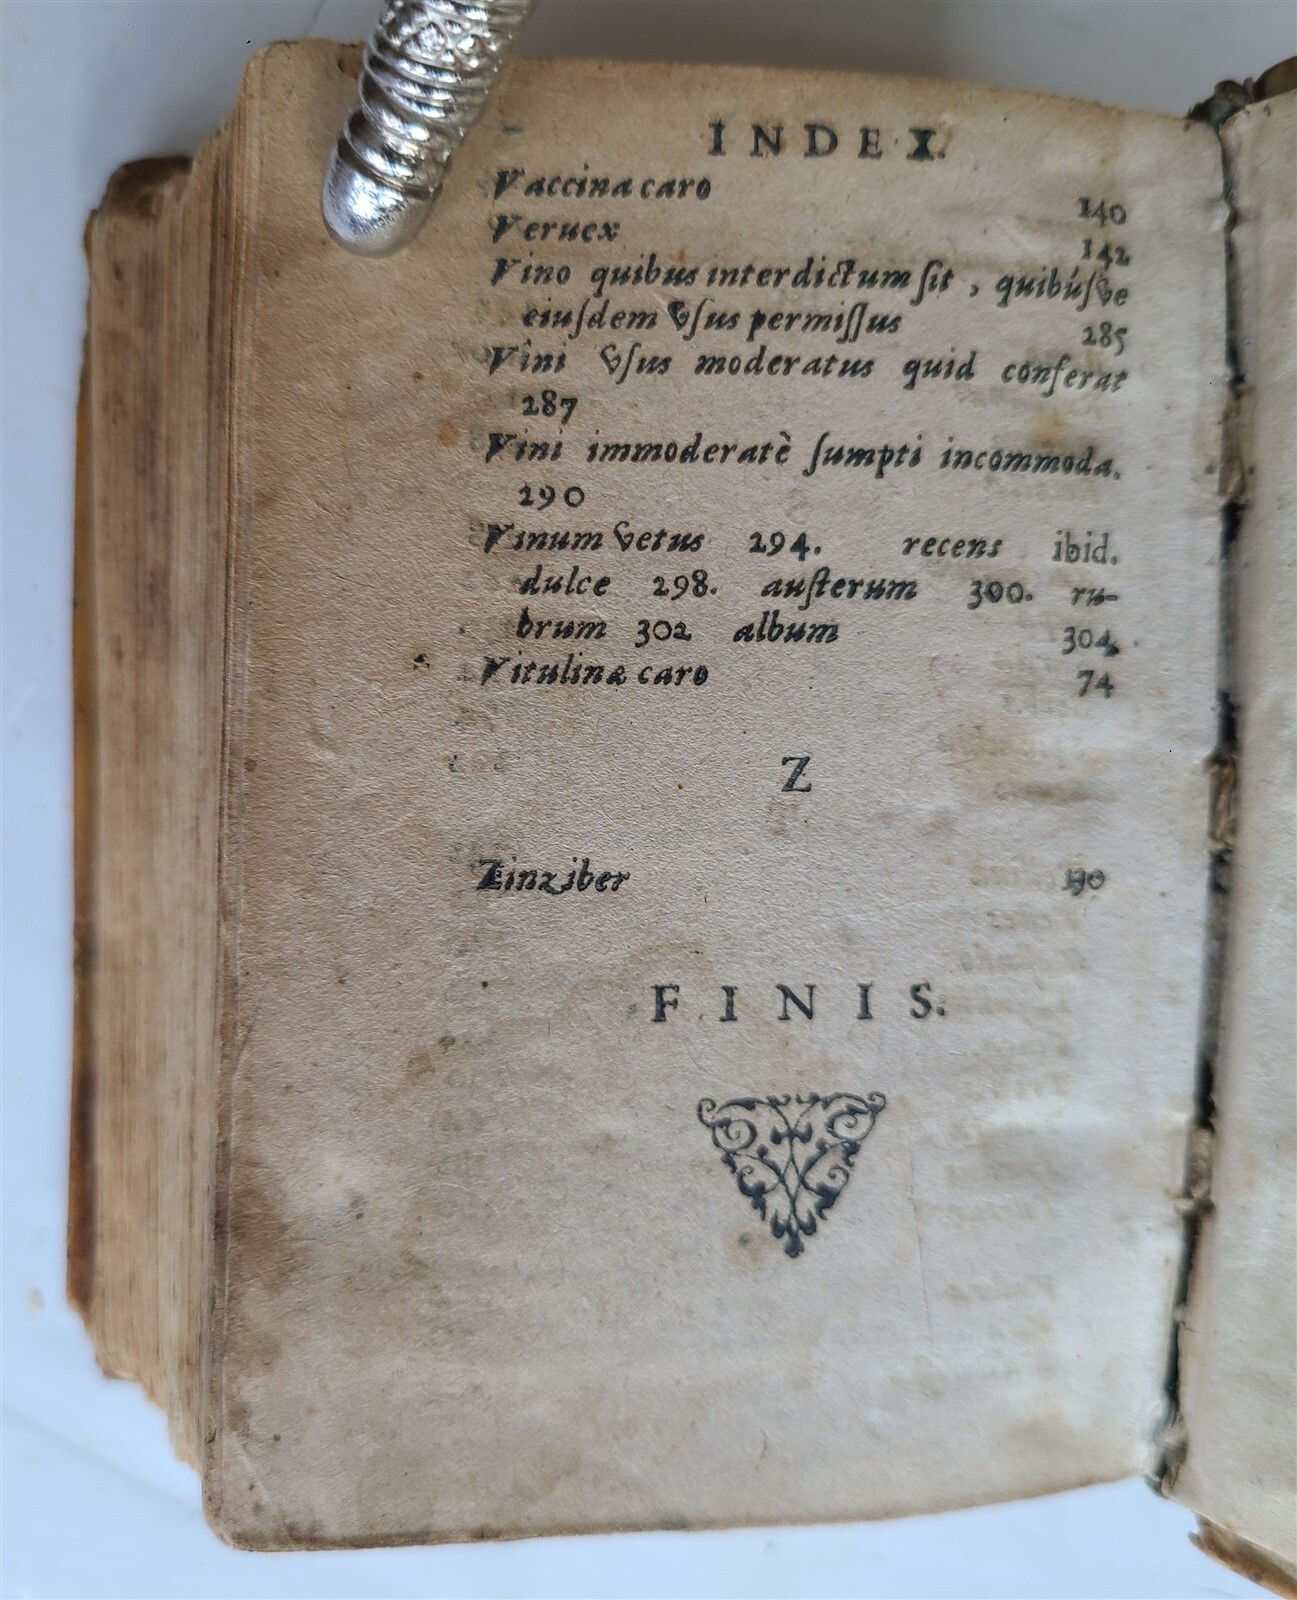 INDEX.
Vaccina caro 140
Veruex 142
Vino quibus interdictum ſit, quibúſve
eiuſdem vſus permiſſus 285
Vini vſus moderatus quid conferat
287
Vini immoderatè ſumpti incommoda.
290
Vinum vetus 294. recens ibid.
dulce 298. auſterum 300. ru-
brum 302 album 304
Vitulina caro 74
Z
Zinziber 190
FINIS.